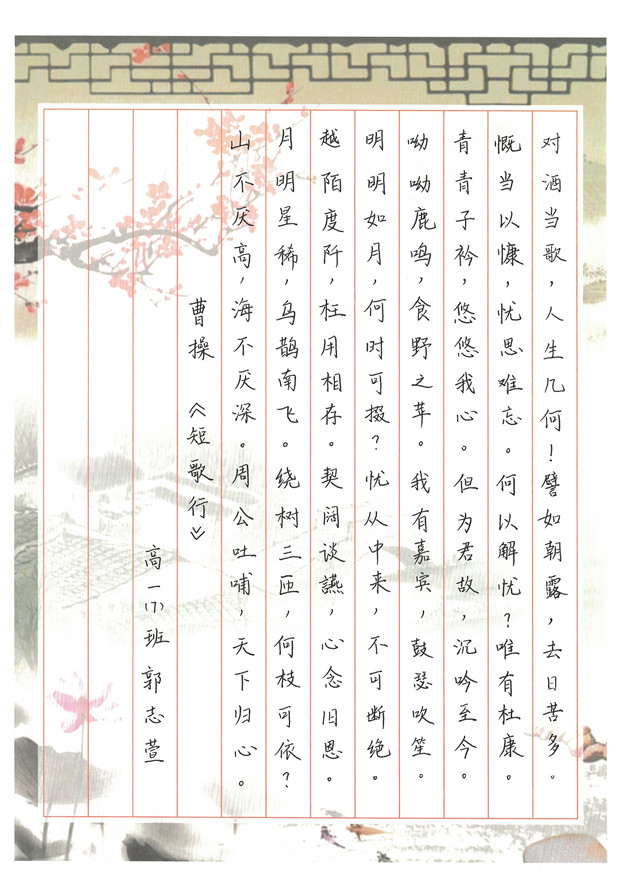 对酒当歌，人生几何！譬如朝露，去日苦多。
慨当以慷，忧思难忘。何以解忧？唯有杜康。
青青子衿，悠悠我心。但为君故，沉吟至今。
呦呦鹿鸣，食野之苹。我有嘉宾，鼓瑟吹笙。
明明如月，何时可掇？忧从中来，不可断绝。
越陌度阡，枉用相存。契阔谈讌，心念旧恩。
月明星稀，乌鹊南飞。绕树三匝，何枝可依？
山不厌高，海不厌深。周公吐哺，天下归心。
曹操 《短歌行》
高一(7)班郭志萱